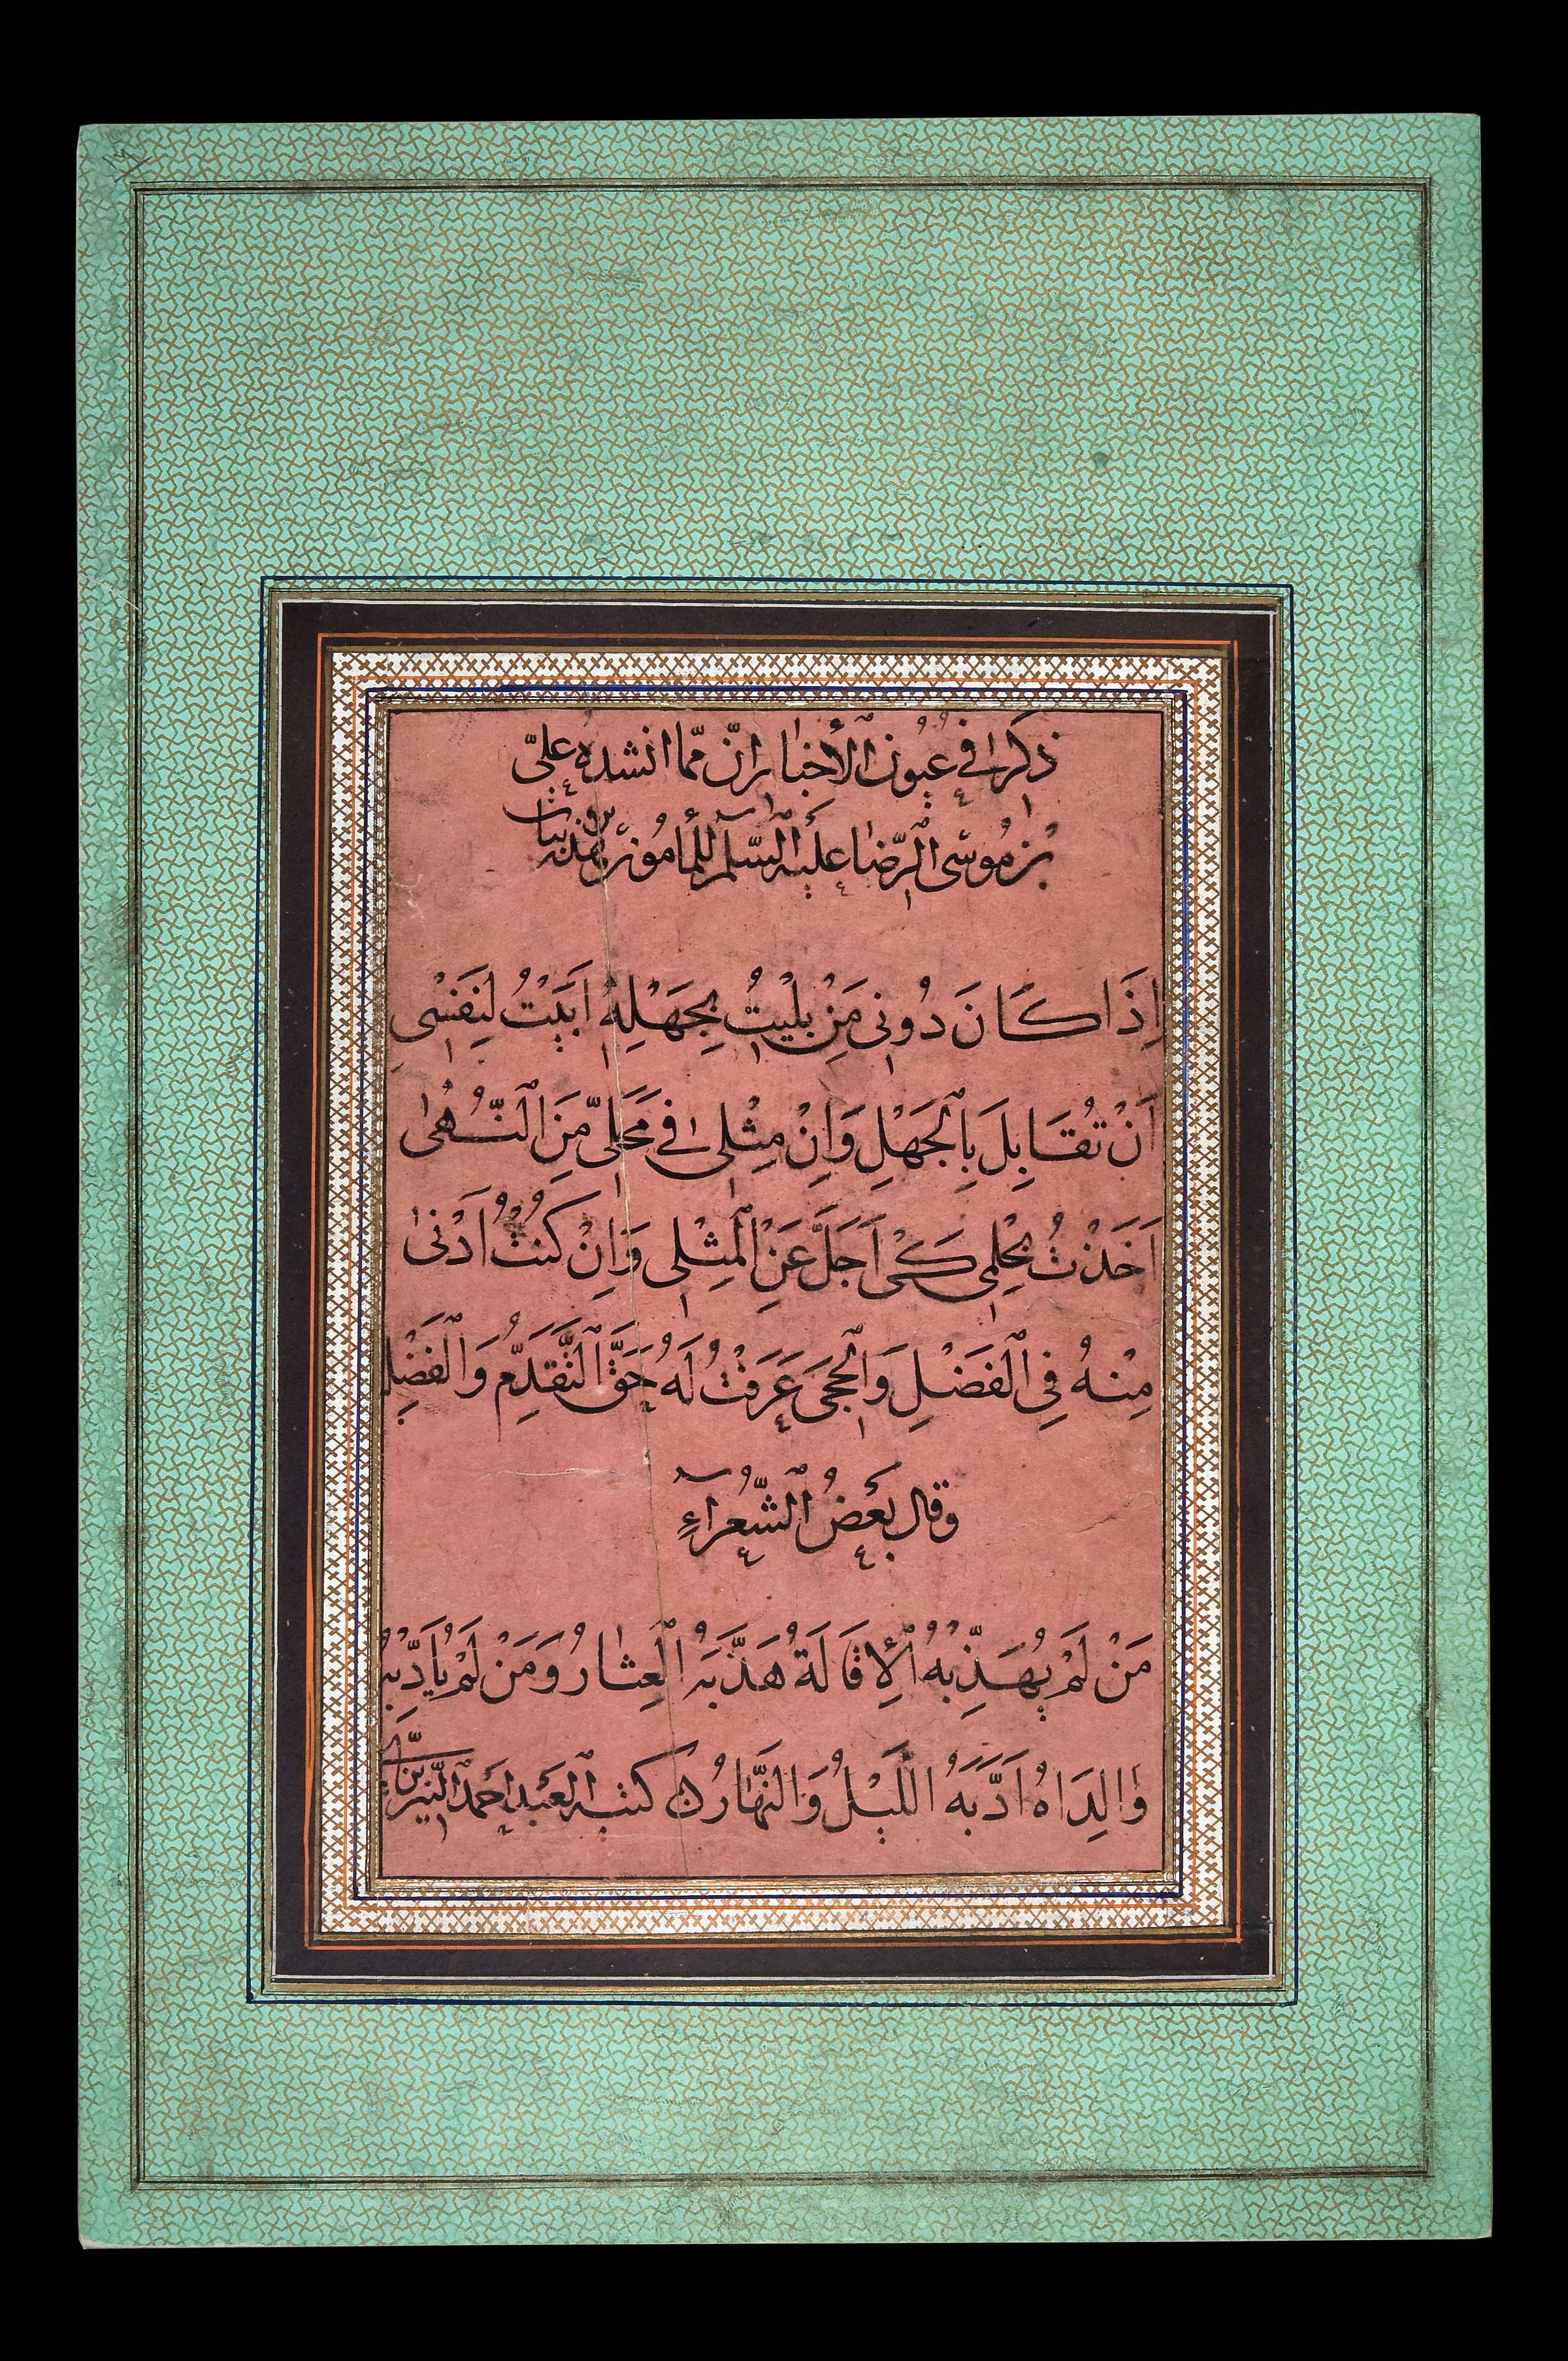 ذكر في عيون الأخبار انّ ممّا انشده عليّ
بن موسى الرّضا عليه السّلم للمأمون هذه بيات
اِذَا كَانَ دُونى مَنْ بليتُ بِجَهْلِهِ اَبَيْتُ لِنَفْسى
اَنْ تُقَابِلَ بِالْجَهْلِ وَاِنْ مِثْلى في مَحَلّى مِنَ النُّهٰى
اَخَذْتُ بحِلْمى كَىْ اَجَلَّ عَنِ الْمِثْلى وَاِنْ كُنْتُ اَدْنىٰ
مِنْهُ فِى الْفَضْلِ وَالْحِجَى عَرَفْتُ لَهُ حَقَّ التَّقَدُّمِ وَالْفَضْلِ
وقال بعضُ الشّعراءِ
مَنْ لَمْ يُهَذِّبْهُ الْإِقَالَةُ هَذَّبَهُ الْعِثٰارُ وَمَنْ لَمْ يُأَدِّبْهُ
وٰالِدَاهُ اَدَّبَهُ اللَّيْلُ وَالنَّهَارُ كتبه العبد احمد النيريزى